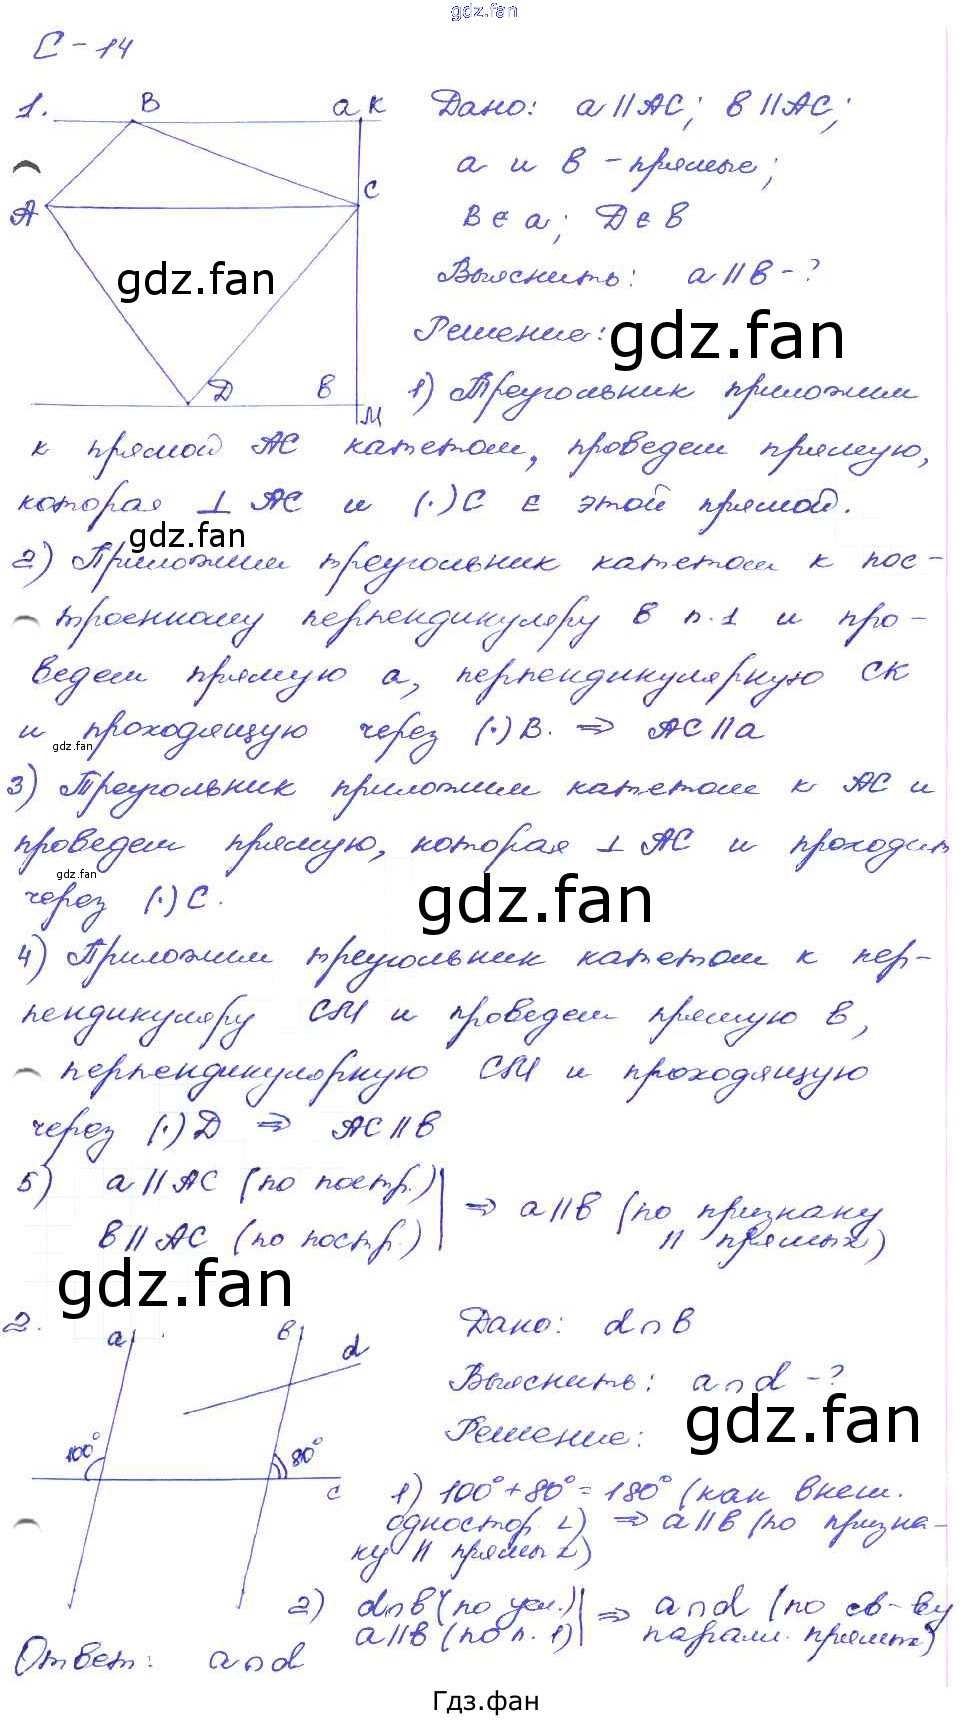 gdz.fan
С-14
1. В а К Дано: a || AC; в || AC;
а и в - прямые;
А С B ∈ a; D ∈ в
gdz.fan Выяснить: a || в - ?
Решение: gdz.fan
D в М 1) Треугольник приложим
к прямой AC катетом, проведем прямую,
которая ⊥ AC и (·) C ∈ этой прямой.
gdz.fan
2) Приложим треугольник катетом к пос-
троенному перпендикуляру в п.1 и про-
ведем прямую a, перпендикулярную СК
и проходящую через (·) B. ⇒ AC || a
gdz.fan
3) Треугольник приложим катетом к AC и
проведем прямую, которая ⊥ AC и проходит
gdz.fan
через (·) C. gdz.fan
4) Приложим треугольник катетом к пер-
пендикуляру СМ и проведем прямую в,
перпендикулярную СМ и проходящую
через (·) D ⇒ AC || в
5) a || AC (по постр.) | ⇒ a || в (по признаку
в || AC (по постр.) | || прямых)
gdz.fan
2. a в d Дано: d ∩ в
Выяснить: a ∩ d - ?
gdz.fan
100° 80° Решение:
с 1) 100° + 80° = 180° (как внеш.
одностор. ∠) ⇒ a || в (по призна-
ку || прямых)
2) d ∩ в (по усл.) | ⇒ a ∩ d (по св-ву
a || в (по п. 1) | паралл. прямых)
Ответ: a ∩ d
Гдз.фан